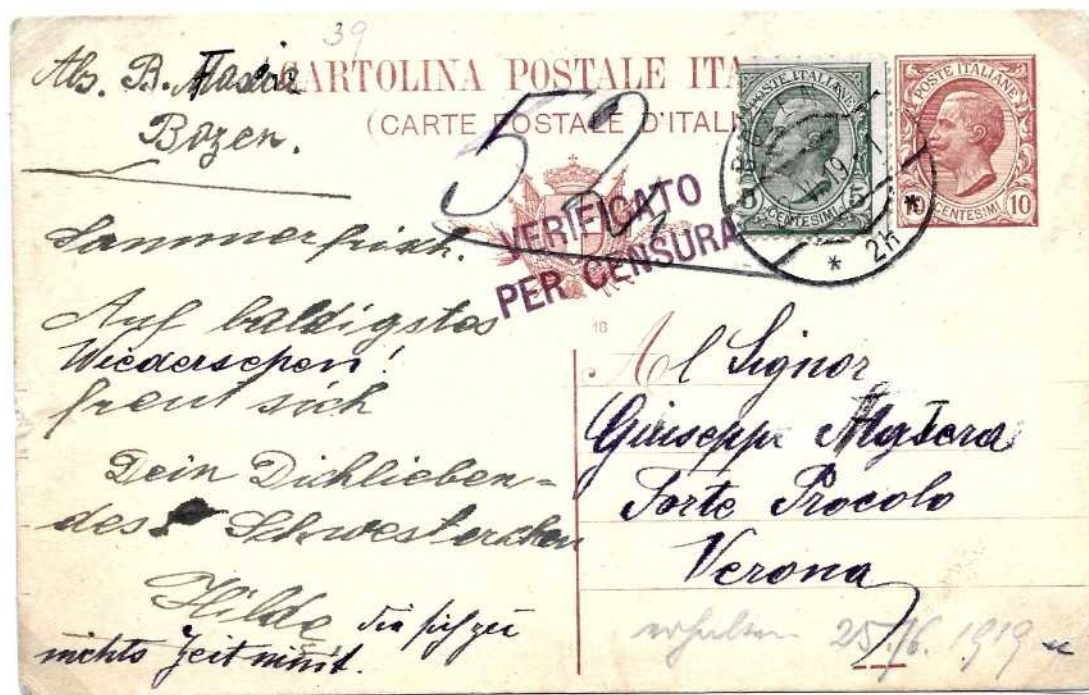 39
Abs. B.
Bozen.
CARTOLINA POSTALE ITA
(CARTE POSTALE D'ITALI
52
VERIFICATO
PER CENSURA
POSTE ITALIANE
5 CENTESIMI 5
POSTE ITALIANE
10 CENTESIMI 10
BOZEN
19
2h
18
Sommerfrisch.
Auf baldigstes
Wiedersehen!
freut sich
Dein Dichlieben-
des Schwesterchen
Hilde die sich zu
nichts Zeit nimt.
Al Signor
Giuseppe
Forte Procolo
Verona
erhalten 25./6. 1919